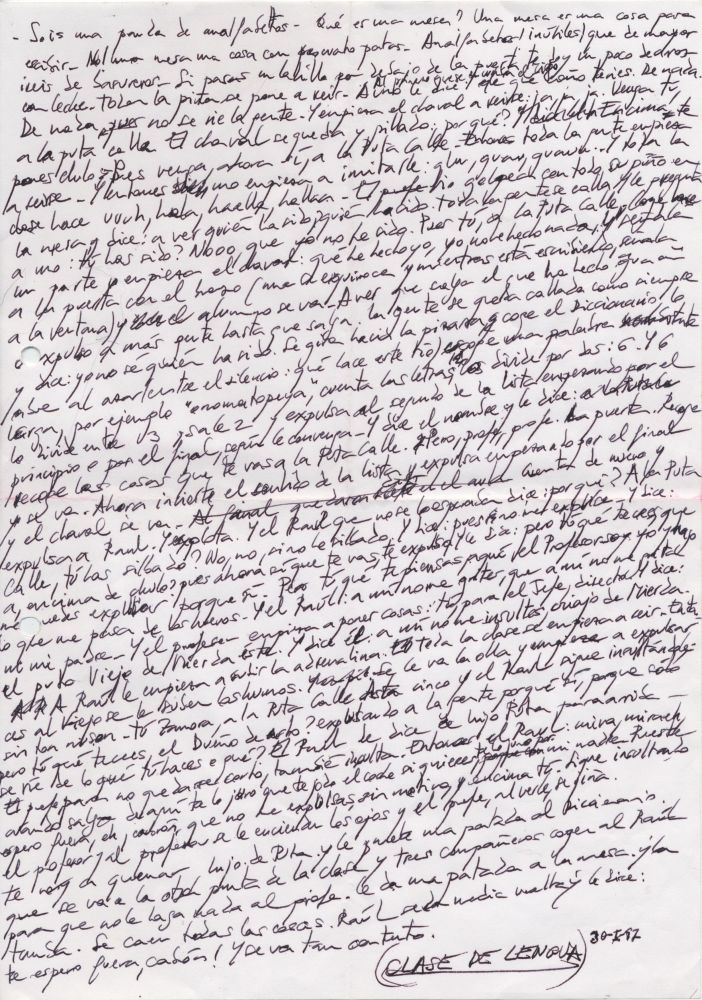 - Sois una panda de analfabetos - Qué es una mesa? Una mesa es una cosa para
escribir - No! una mesa una cosa con cuatro patas - Analfabetos! inútiles! que de mayor
seréis de basureros - Si pasas un ladrillo por debajo de la puerta te doy un poco de arroz
con leche - Toda la pista se pone a reir - A uno le dice
De nada, pues no se ríe la gente. Y empieza el chaval a reirse: ja, ja, ja. Venga tú,
a la puta calle. El chaval se queda pillado: por qué? Encima te
pones chulo? pues venga, ahora sí, a la Puta Calle - toda la gente empieza
a reirse - Y entonces uno empieza a imitarle: Y toda la
clase hace uuuh, El profe golpea con todo su puño en
la mesa y dice: a ver quién ha sido, quién ha sido. Toda la gente se calla y le pregunta
a uno: tú has sido? Nooo, que yo no he sido. Pues tú, a la Puta Calle,
un parte y empieza el chaval: qué he hecho yo, yo no he hecho nada, y señala
a la puerta con el brazo (una vez se equivoca y mientras está escribiendo, señala
a la ventana) y el alumno se va. A ver que salga el que ha hecho
o expulso a más gente hasta que salga, la gente se queda callada como siempre
y dice: yo no sé quién ha sido. Se gira hacia la pizarra y coge el diccionario, lo
abre al azar (entre el silencio: qué hace este tío) escoge una palabra
larga, por ejemplo "onomatopeya", cuenta las letras, las divide por dos: 6. Y 6
lo divide entre 3, sale 2 y expulsa al segundo de la lista empezando por el
principio o por el final, según le convenga - Y dice el nombre y le dice:
recoge las cosas que te vas a la Puta Calle. Pero, profe, profe. La puerta. Recoge
y se va. Ahora invierte el sentido de la lista y expulsa empezando por el final
y el chaval se va - Cuenta de nuevo y
expulsa a Raúl. Y explota. Y el Raúl que no se lo esperaba dice: por qué? A la Puta
Calle, tú has silbado? No, no, si no he silbado. Y dice: pues no me expulse - Y dice:
a, encima de chulo? pues ahora sí que te vas, te expulso y le dice: pero tú qué te crees que
me puedes expulsar porque sí - Pero tú qué te piensas, aquí el Profesor soy yo y hago
lo que me pasa de los huevos - Y el Raúl: a mí no me grites, que a mí no me grita
ni mi padre - Y el profesor empieza a poner cosas: tú, para el Jefe, director. Y dice:
el puto Viejo de Mierda este. Y dice él: a mí no me insultes, criajo de Mierda.
A Raúl le empieza a subir la adrenalina. toda la clase se empieza a reir. Enton-
ces al viejo se le suben los humos. Y se le va la olla y empieza a expulsar
sin ton ni son. Tú Zamora, a la Puta Calle. cinco y el Raúl sigue insultando:
pero tú qué te crees, el Dueño de esto? expulsando a la gente porque sí, porque sólo
se ríe de lo que tú haces o qué? El Raúl le dice de hijo Puta para arriba -
El profe para no quedarse corto, también insulta. Entonces el Raúl: mira, mira, eh,
cuando salga de aquí te lo juro que te jodo el coche si quieres mi madre. Puesto
espero fuera, eh, cabrón, que no me expulsas sin motivo y encima tú. Sigue insultando
el profesor, y al profesor se le encienden los ojos y el profe, al verle, se gira.
te voy a quemar, hijo de Puta. y le mete una patada al Diccionario
que se va a la otra punta de la clase y tres compañeros cogen al Raúl
para que no le haga nada al profe. Le da una patada a la mesa. y la
tumba. Se caen todas las cosas. Raúl se da media vuelta y le dice:
te espero fuera, cabrón! Y se va tan contento.
30-I-97
(CLASE DE LENGUA)